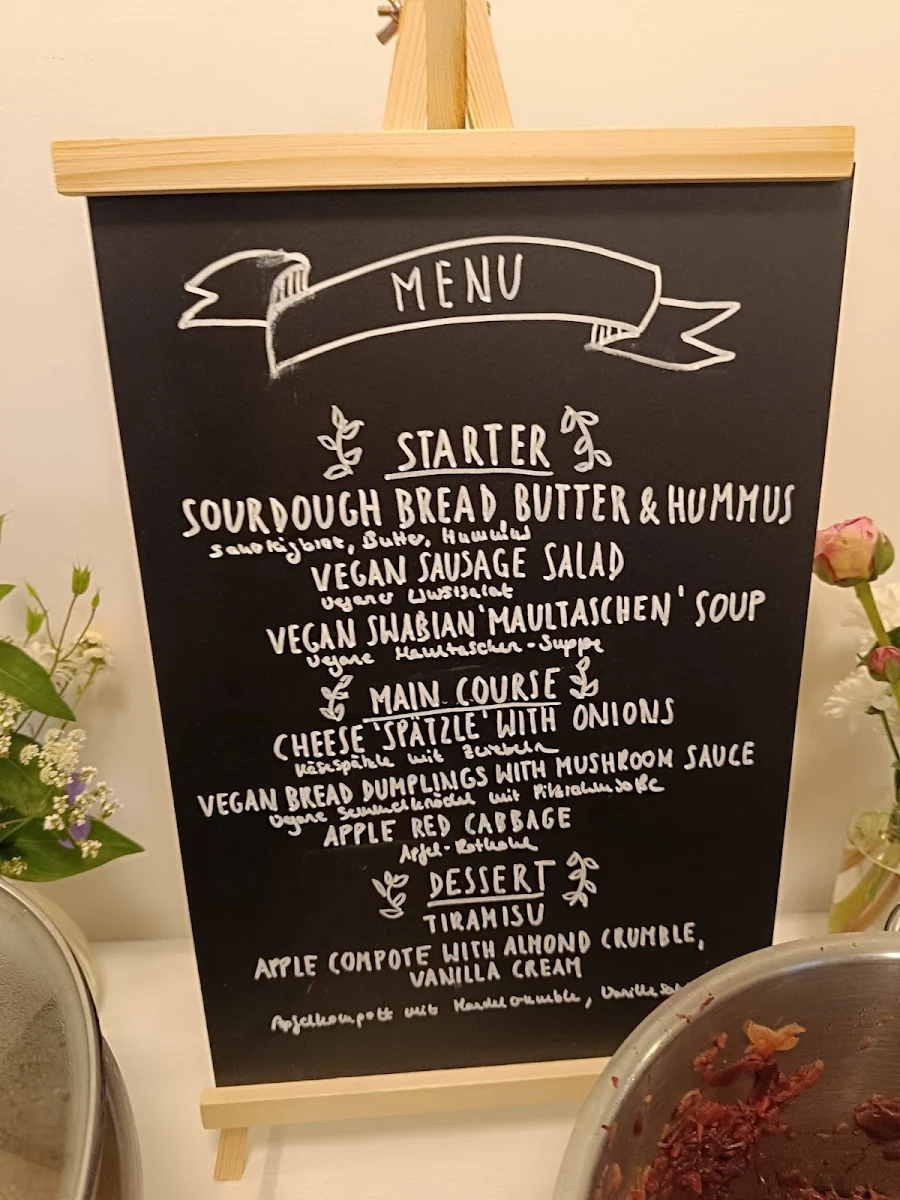 MENU
STARTER
SOURDOUGH BREAD BUTTER & HUMMUS
Sauerteigbrot, Butter, Hummus
VEGAN SAUSAGE SALAD
Veganer Wurstsalat
VEGAN SWABIAN 'MAULTASCHEN' SOUP
Vegane Maultaschen-Suppe
MAIN COURSE
CHEESE 'SPÄTZLE' WITH ONIONS
Käsespätzle mit Zwiebeln
VEGAN BREAD DUMPLINGS WITH MUSHROOM SAUCE
Vegane Semmelknödel mit Pilzrahmsoße
APPLE RED CABBAGE
Apfel-Rotkohl
DESSERT
TIRAMISU
APPLE COMPOTE WITH ALMOND CRUMBLE,
VANILLA CREAM
Apfelkompott mit Mandelcrumble,